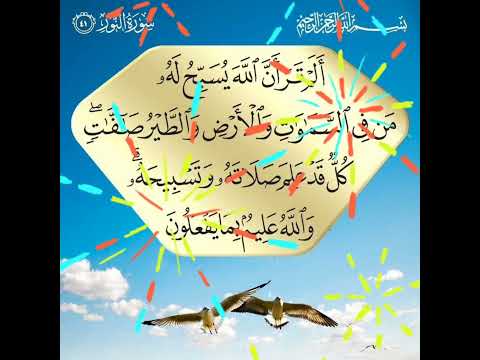 بِسْمِ اللَّهِ الرَّحْمَٰنِ الرَّحِيمِ
سُورَةُ النُّورِ ٤١
أَلَمْ تَرَ أَنَّ ٱللَّهَ يُسَبِّحُ لَهُۥ
مَن فِى ٱلسَّمَٰوَٰتِ وَٱلْأَرْضِ وَٱلطَّيْرُ صَٰٓفَّٰتٍۖ
كُلٌّ قَدْ عَلِمَ صَلَاتَهُۥ وَتَسْبِيحَهُۥۗ
وَٱللَّهُ عَلِيمٌۢ بِمَا يَفْعَلُونَ